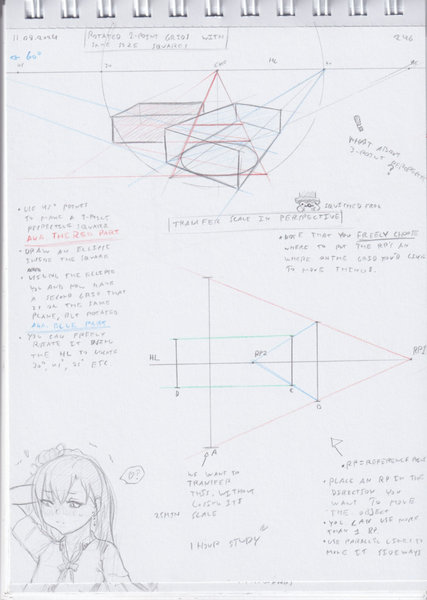 11.08.2024
ROTATED 2-POINT GRIDS WITH
SAME SIZE SQUARES
246
60°
HL
WHAT ABOUT
3-POINT PERSPECTIVE
?
• USE 45° POINTS
TO MAKE A 1-POINT
PERSPECTIVE SQUARE
AKA THE RED PART
• DRAW AN ELLIPSE
INSIDE THE SQUARE
• USING THE ELLIPSE
YOU AND NOW HAVE
A SECOND GRID THAT
IS ON THE SAME
PLANE, BUT ROTATED
AKA BLUE PART
• YOU CAN FREELY
ROTATE IT
THE HL TO
ETC
SQUINTING FROG
TRANSFER SCALE IN PERSPECTIVE
• NOTE THAT YOU FREELY CHOOSE
WHERE TO PUT THE RP'S
WHERE ON THE GRID YOU'D LIKE
TO MOVE THINGS.
HL
RP2
RP1
B
C
D
A
WE WANT TO
TRANSFER
THIS, WITHOUT
LOSING ITS
SCALE
25MIN
1 HOUR STUDY
• RP = REFERENCE
• PLACE AN RP IN THE
DIRECTION YOU
WANT TO MOVE
THE OBJECT
• YOU CAN USE MORE
THAN 1 RP
• USE PARALLEL LINES TO
MOVE IT SIDEWAYS
?